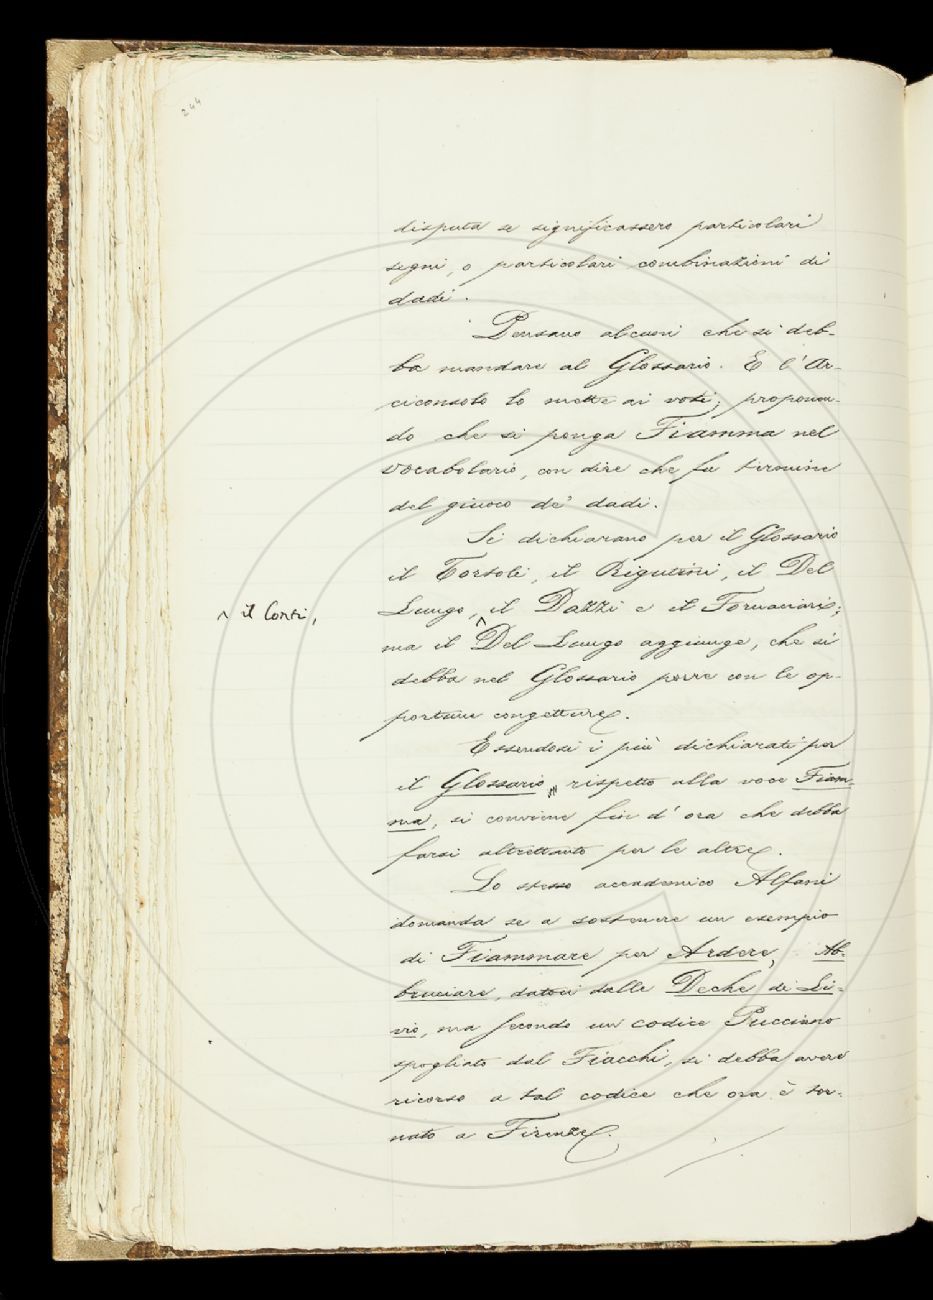 244
disputa se significassero particolari
segni, o particolari combinazioni di
dadi.
Pensano alcuni che si deb-
ba mandare al Glossario. E l'Ar-
ciconsolo lo mette ai voti; proponen-
do che si ponga Fiamma nel
vocabolario, con dire che fu termine
del giuoco de' dadi.
Si dichiarano per il Glossario
il Tortoli, il Rigutini, il Del
Lungo, il Dazzi e il Fornaciari;
^ il Conti,
ma il Del Lungo aggiunge, che si
debba nel Glossario porre con le op-
portune congetture.
Essendosi i più dichiarati per
il Glossario rispetto alla voce Fiam-
ma, si conviene fin d'ora che debba
farsi altrettanto per le altre.
Lo stesso accademico Alfani
domanda se a sostenere un esempio
di Fiammare per Ardere, Ab-
bruciare, datoci dalle Deche di Li-
vio, ma secondo un codice Pucciano
spogliato dal Fiacchi, si debba avere
ricorso a tal codice che ora è tor-
nato a Firenze.